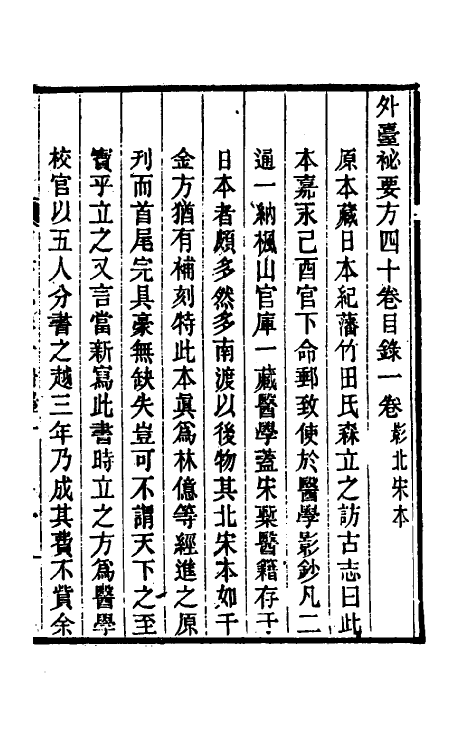 外臺祕要方四十卷目錄一卷影北宋本
原本藏日本紀藩竹田氏森立之訪古志曰此
本嘉永己酉官下命郵致使於醫學影鈔凡二
通一納楓山官庫一藏醫學蓋宋槧醫籍存于
日本者頗多然多南渡以後物其北宋本如千
金方猶有補刻特此本眞爲林億等經進之原
刋而首尾完具豪無缺失豈可不謂天下之至
寳乎立之又言當新寫此書時立之方爲醫學
校官以五人分書之越三年乃成其費不貲余